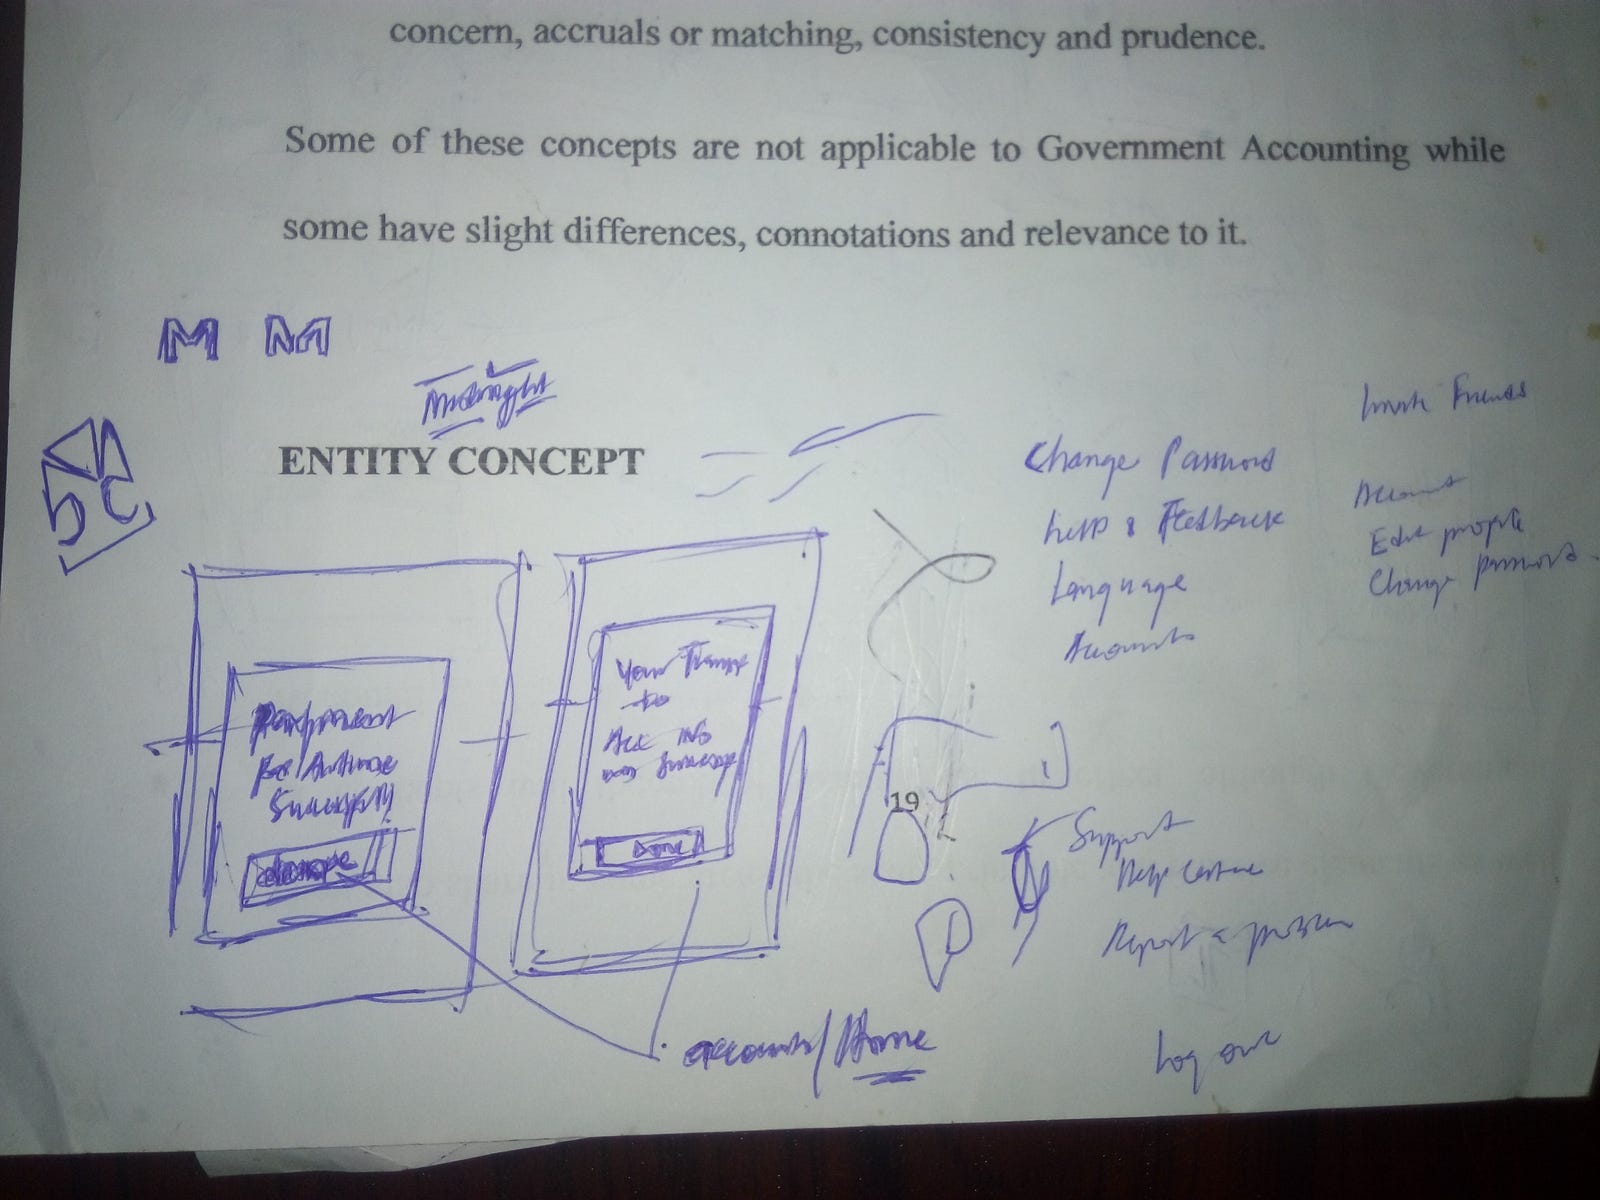 concern, accruals or matching, consistency and prudence.
Some of these concepts are not applicable to Government Accounting while
some have slight differences, connotations and relevance to it.
M M
Midnight
ENTITY CONCEPT
Friends
Change Password
Help & Feedback
Language
Accounts
Account
Edit profile
Change password
Your
to
was
Done
19
Support
Help centre
Report a problem
Log out
accounts/Home